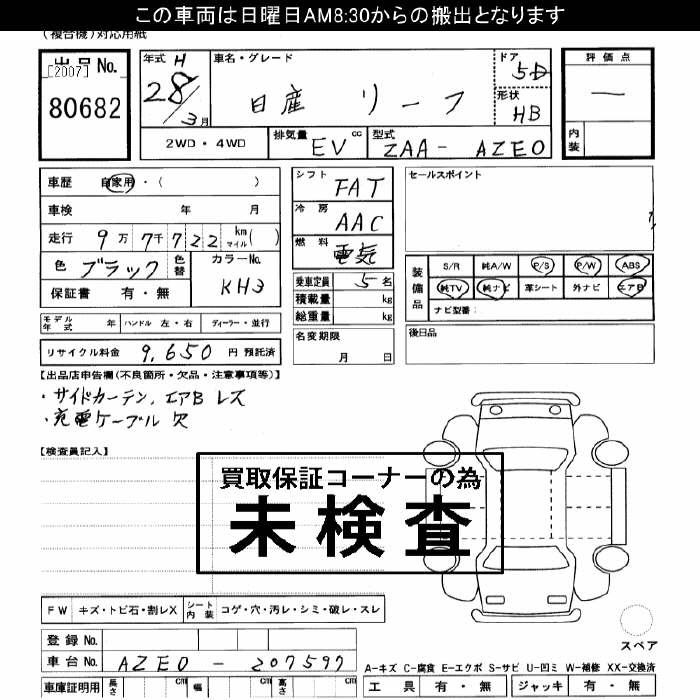 この車両は日曜日AM8:30からの搬出となります
(複合機)対応用紙
出品No.
[2007]
80682
年式 H
28/3月
車名・グレード
日産 リーフ
ドア
5D
形状
HB
評価点
—
内装
2WD・4WD
排気量 EV cc
型式 ZAA- AZE0
車歴 自家用・( )
車検 年 月
走行 9万7千722 km マイル( )
色 ブラック 色替
カラーNo.
KH3
保証書 有・無
シフト FAT
冷房 AAC
燃料 電気
乗車定員 5名
積載量 kg
総重量 kg
名変期限
月 日
セールスポイント
装備品
S/R 純A/W P/S P/W ABS
純TV 純ナビ 革シート 外ナビ エアB
ナビ型番:
後日品
モデル年式 年 ハンドル 左・右 ディーラー・並行
リサイクル料金 9,650 円 預託済
【出品店申告欄(不良箇所・欠品・注意事項等)】
・サイドカーテン,エアB レス
・充電ケーブル 欠
【検査員記入】
買取保証コーナーの為
未検査
FW キズ・トビ石・割レX シート内装 コゲ・穴・汚レ・シミ・破レ・スレ
スペア
登録No.
車台No. AZE0 - 207597
A-キズ C-腐食 E-エクボ S-サビ U-凹ミ W-補修 XX-交換済
車庫証明用 長さ cm 幅 cm 高さ cm
工具 有・無 ジャッキ 有・無